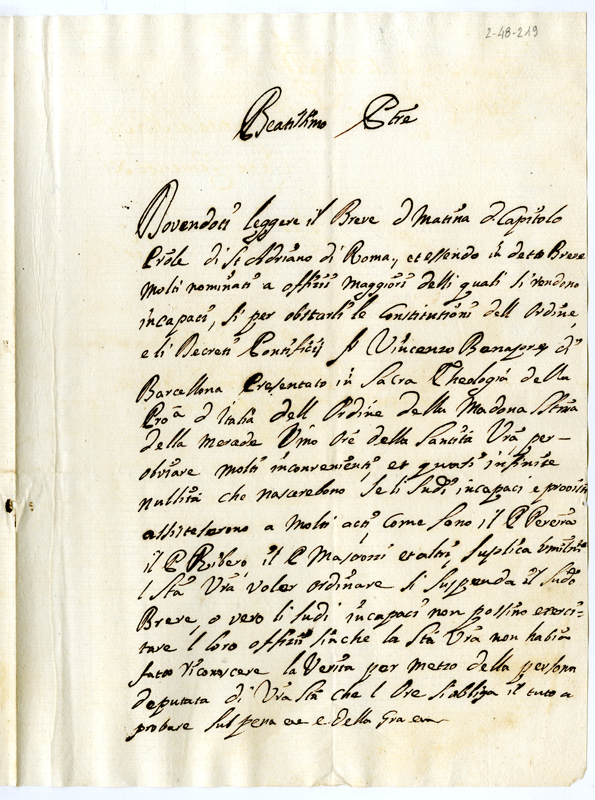 2-48-219
Beatissimo Pre
Dovendosi leggere il Breve d Matina d Capitolo
Prõle di St Adriano di Roma, et essendo in detto Breve
molti nominati a offizii maggiori delli quali si rendono
incapaci, si per obstarli le Constitutioni dell Ordine,
e li Decreti Pontificij fr Vincenzo Bonapres di
Barcellona Presentato in Sacra Theologia della
Proã d Italia dell Ordine della Madona Ssma
della Merede Vmo Ore della Santità Vrã per-
obviare molti inconvenienti et quasi infinite
nullità che nascerebono se li sudi incapaci e provisti
assistesserono a molti acti, come sono il P Pereira
il P Ribero, il P Masconi et altri, suplica
l Stà Vrã voler ordinare si suspenda il sudo
Breve, o vero li sudi incapaci non possino exerci-
tare l loro offizii sinche la Stà Vrã non habia
fatto riconoscere la Verità per mezzo della persona
deputata di Vrã Stà che l Ore s'obliga il tuto a
probare sul pena &c e della Gra &c